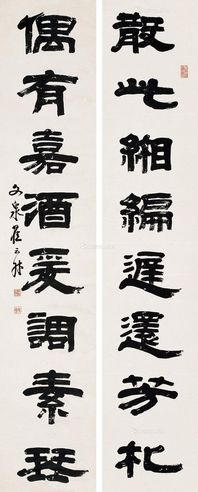 散此緗編遲還芳札
偶有嘉酒爰調素琴